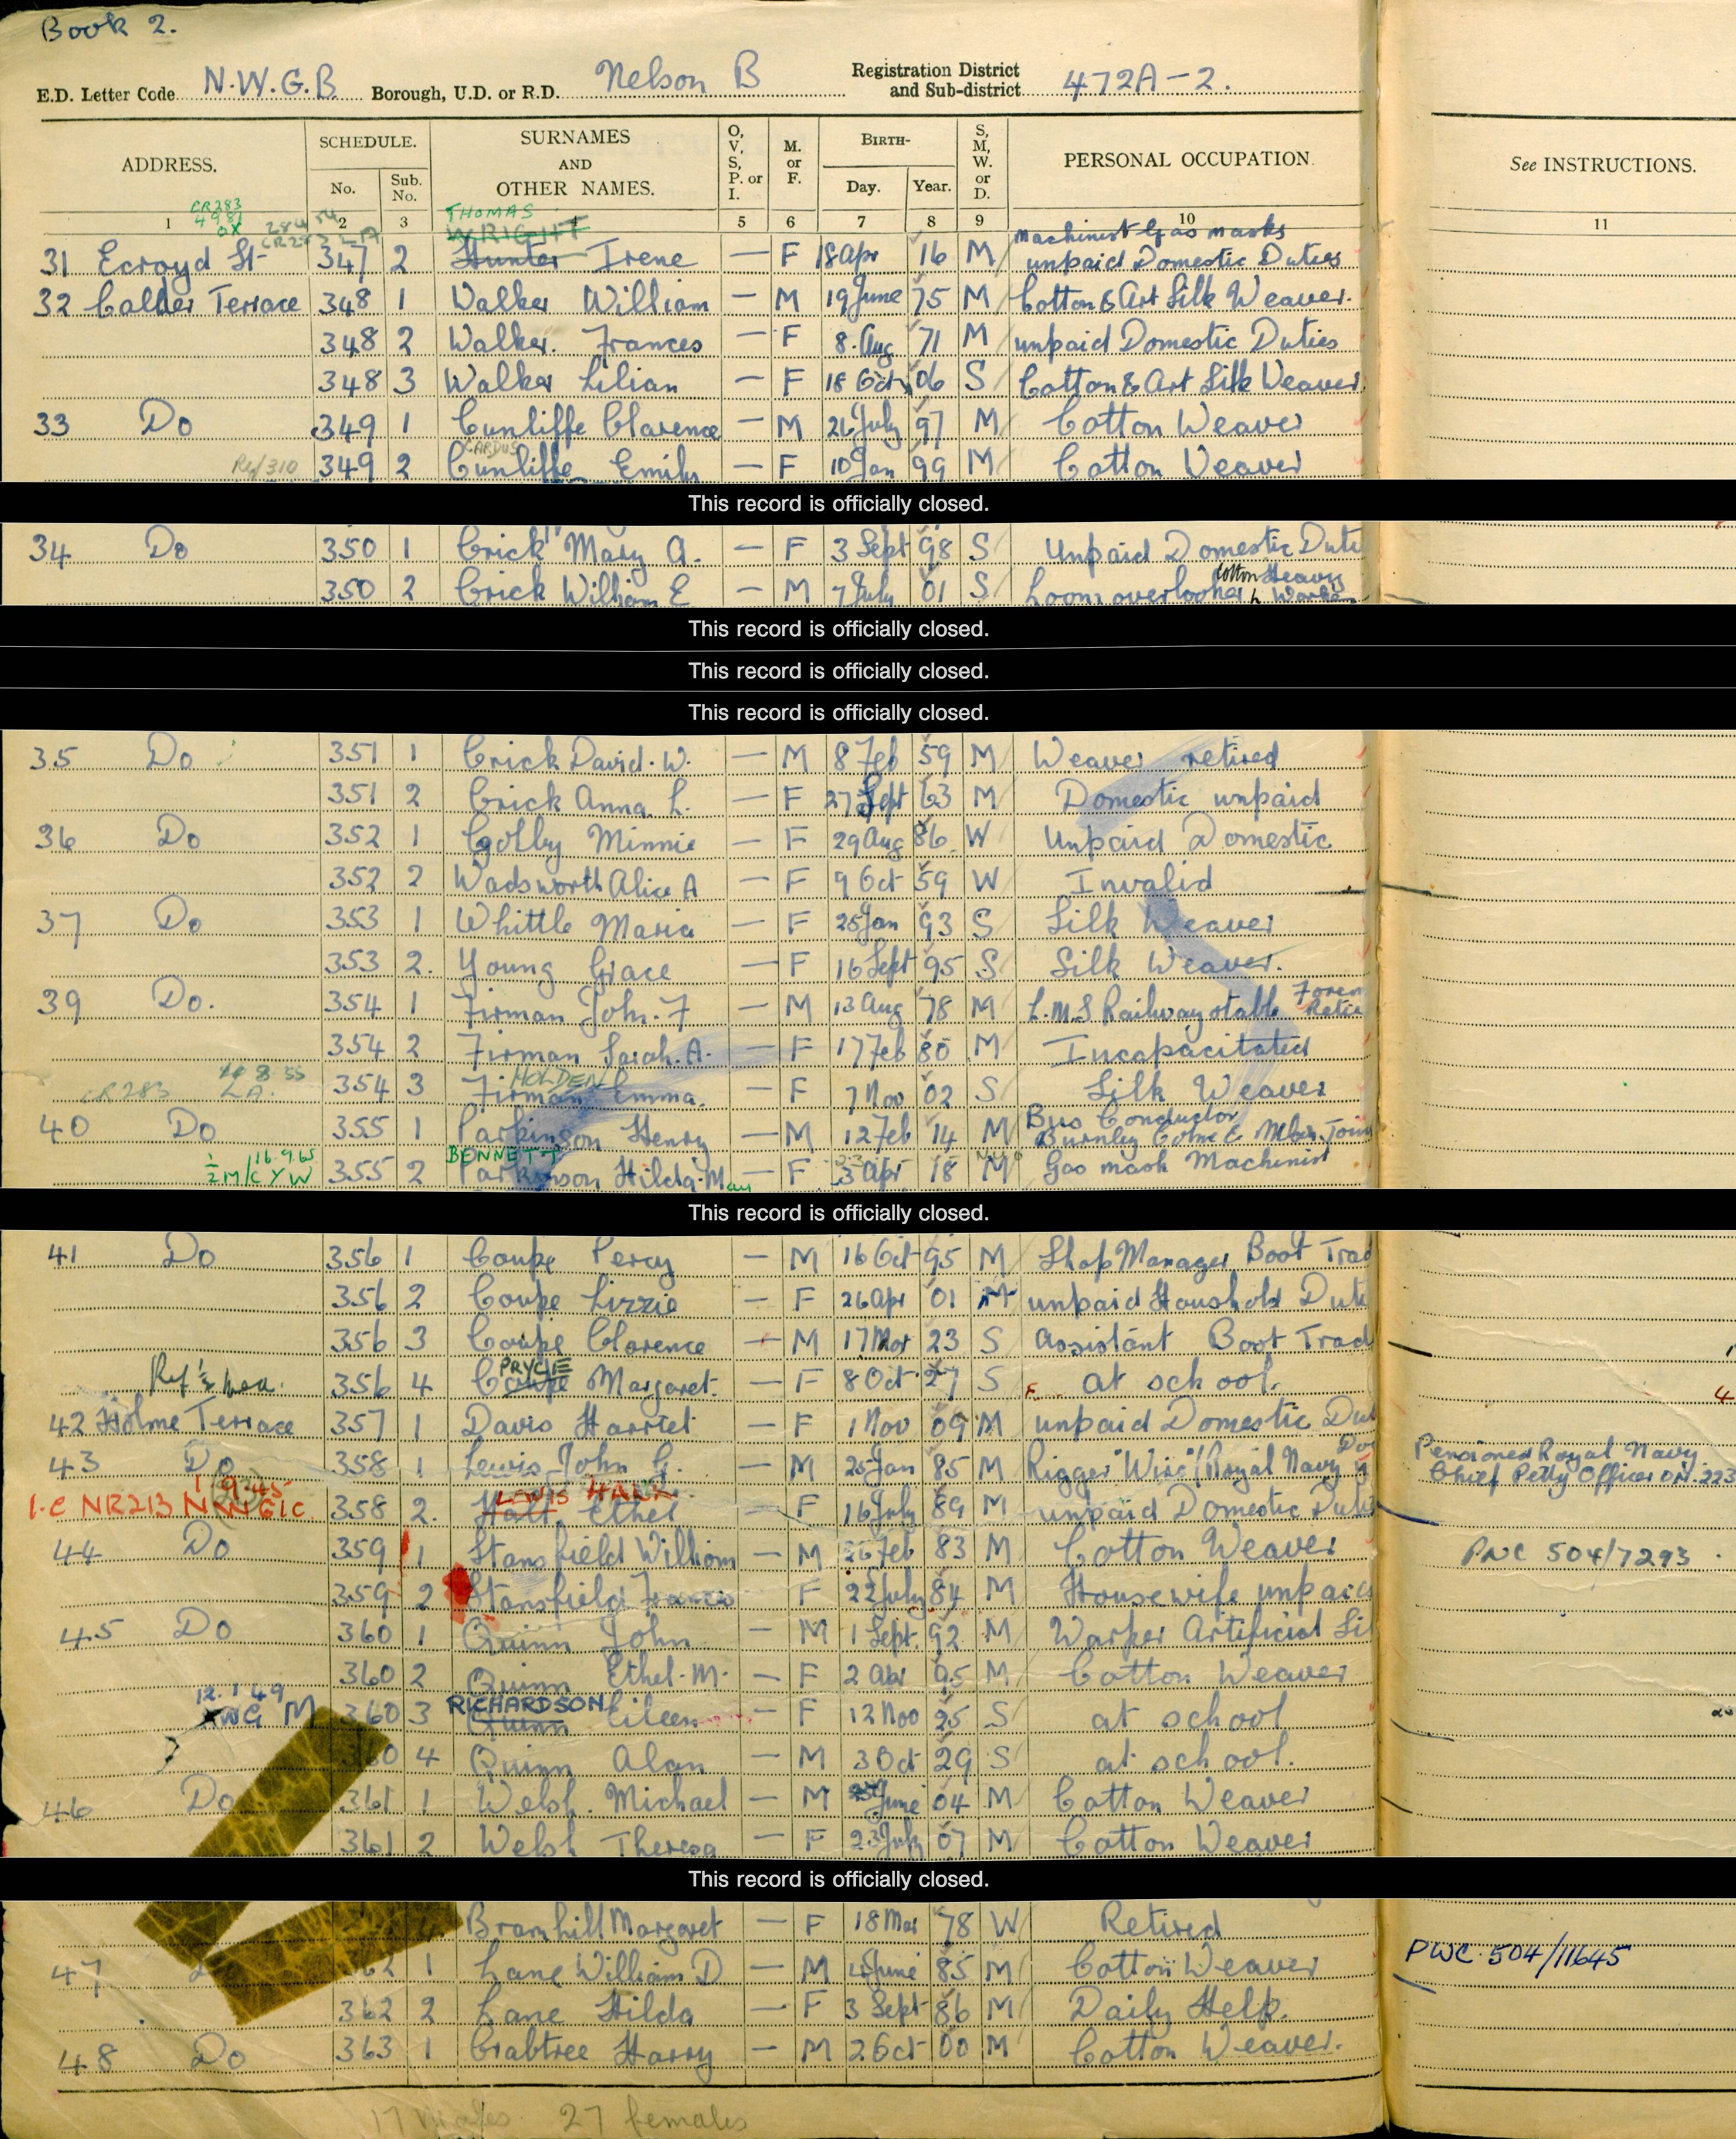 Book 2.
E.D. Letter Code N.W.G.B. Borough, U.D. or R.D. Nelson B Registration District and Sub-district 472A-2.
ADDRESS. SCHEDULE. No. Sub. No. SURNAMES AND OTHER NAMES. O, V, S, P. or I. M. or F. BIRTH- Day. Year. S, M, W. or D. PERSONAL OCCUPATION. See INSTRUCTIONS.
1 2 3 4 5 6 7 8 9 10 11
CR283 THOMAS
WRIGHT Machinist Gas masks
31 Ecroyd St 347 2 Hunter Irene — F 18 Apr 16 M unpaid Domestic Duties
32 Calder Terrace 348 1 Walker William — M 19 June 75 M Cotton & Art Silk Weaver.
348 2 Walker. Frances — F 8. Aug 71 M unpaid Domestic Duties
348 3 Walker Lilian — F 18 Oct 06 S Cotton & Art Silk Weaver
33 Do 349 1 Cunliffe Clarence — M 26 July 97 M Cotton Weaver
Ref 310 349 2 Cunliffe Emily — F 10 Jan 99 M Cotton Weaver
This record is officially closed.
34 Do 350 1 Crick Mary A. — F 3 Sept 98 S Unpaid Domestic Duti
350 2 Crick William E — M 7 July 01 S Loom overlooker Cotton Heavy Worker
This record is officially closed.
This record is officially closed.
This record is officially closed.
35 Do 351 1 Crick David. W. — M 8 Feb 59 M Weaver retired
351 2 Crick Anna L. — F 27 Sept 63 M Domestic unpaid
36 Do 352 1 Golby Minnie — F 29 Aug 86 W Unpaid Domestic
352 2 Wadsworth Alice A — F 9 Oct 59 W Invalid
37 Do 353 1 Whittle Maria — F 25 Jan 93 S Silk Weaver
353 2. Young Grace — F 16 Sept 95 S Silk Weaver.
39 Do. 354 1 Firman John. F — M 13 Aug 78 M L.M.S Railway stable Forem Retir
354 2 Firman Sarah. A. — F 17 Feb 80 M Incapacitated
CR283 LA. 354 3 Firman HOLDEN Emma. — F 7 Nov 02 S Silk Weaver
40 Do 355 1 Parkinson Henry — M 12 Feb 14 M Bus Conductor Burnley Colne & Nelson Join
16.9.65 M/C YW 355 2 BENNETT Parkinson Hilda May — F 3 Apr 18 M Gas mask Machinist
This record is officially closed.
41 Do 356 1 Coupe Percy — M 16 Oct 95 M Shop Manager Boot Trad
356 2 Coupe Lizzie — F 26 Apr 01 M unpaid Houshold Duti
356 3 Coupe Clarence — M 17 Mar 23 S Assistant Boot Trad
356 4 Coupe PRYCE Margaret. — F 8 Oct 27 S at school.
42 Holme Terrace 357 1 Davis Harriet — F 1 Nov 09 M unpaid Domestic Dut
43 Do 358 1 Lewis John G. — M 25 Jan 85 M Rigger "Wire" Royal Navy Pensioned Royal Navy
Chief Petty Officer ON. 223
1.9.45 NR213 358 2. LEWIS HALL Hall Ethel — F 16 July 89 M unpaid Domestic Duti
44 Do 359 1 Stansfield William — M 26 Feb 83 M Cotton Weaver PWC 504/7293
359 2 Stansfield Francis F 22 July 84 M Housewife unpaid
45 Do 360 1 Quinn John — M 1 Sept. 92 M Warper Artificial Sil
360 2 Quinn Ethel. M. — F 2 Apr 95 M Cotton Weaver
12.1.49 WG M 360 3 RICHARDSON Quinn Eileen — F 12 Nov 25 S at school
360 4 Quinn Alan — M 3 Oct 29 S at school.
46 Do 361 1 Welsh. Michael — M June 04 M Cotton Weaver
361 2 Welsh Theresa — F 23 July 07 M Cotton Weaver
This record is officially closed.
Bramhill Margaret — F 18 Mar 78 W Retired
47 362 1 Lane William D — M 4 June 85 M Cotton Weaver PWC. 504/11645
362 2 Lane Hilda — F 3 Sept 86 M Daily Help.
48 Do 363 1 Crabtree Harry — M 26 Oct 00 M Cotton Weaver.
17 males 27 females